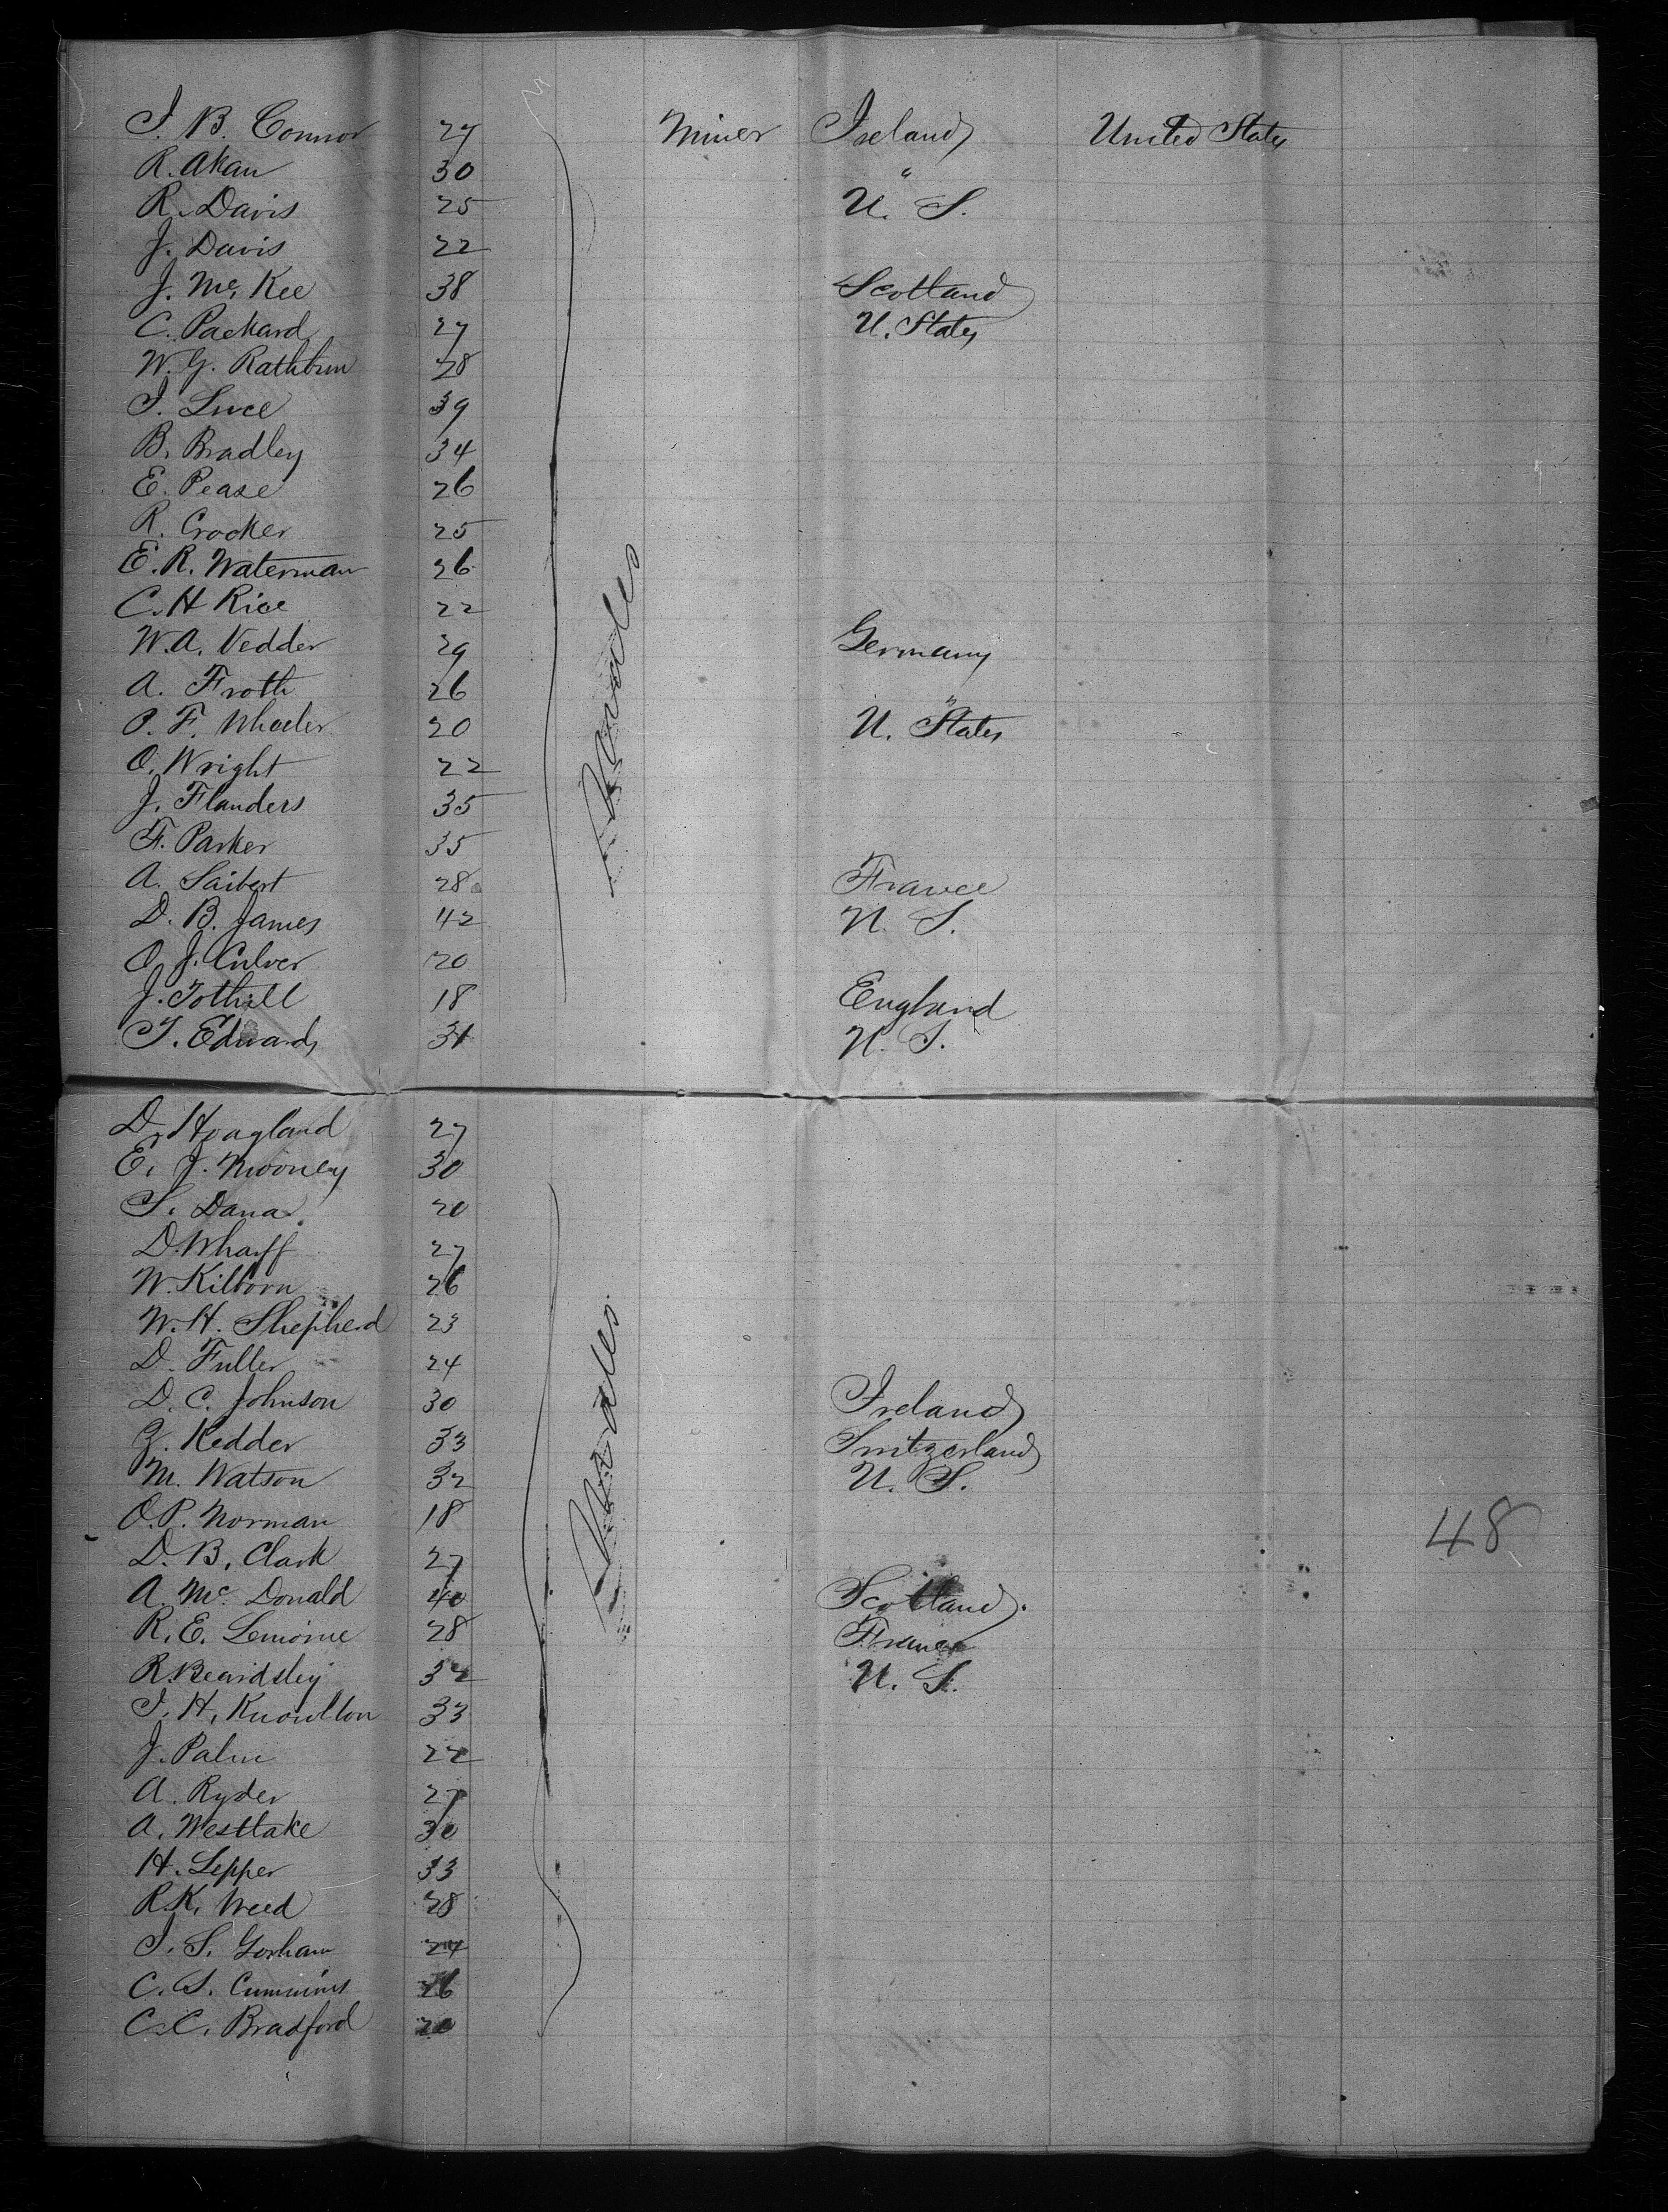 J. B. Connor 27 Miner Ireland United States
R. Akan 30 "
R. Davis 25 U. S.
J. Davis 22
J. Mc Kee 38 Scotland
C. Packard 27 U. States
W. G. Rathbun 28
J. Luce 39
B. Bradley 34
E. Pease 26
R. Crocker 25
E. R. Waterman 26
C. H Rice 22
W. A. Vedder 29 Germany
A. Froth 26 "
O. F. Wheeler 20 U. States
O. Wright 22
J. Flanders 35
F. Parker 35
A. Saibert 28 France
D. B. James 42 U. S.
O. J. Culver 20
J. Tothill 18 England
T. Edwards 31 U. S.
Males
D. Hoagland 27
E. J. Mooney 30
S. Dana 20
D. Wharff 27
W. Kilborn 26
W. H. Shepherd 23
D. Fuller 24
D. C. Johnson 30 Ireland
Z. Kedder 33 Switzerland
M. Watson 32 U. S.
O. P. Norman 18
48
D. B. Clark 27
A. Mc Donald 40 Scotland
R. E. Lemoine 28 France
R. Beardsley 32 U. S.
J. H. Knowlton 33
J. Palm 22
A. Ryder 27
A. Westlake 30
H. Lepper 33
R. K. Weed 28
J. S. Gorham 24
C. S. Cummins 26
C. C. Bradford 20
Males